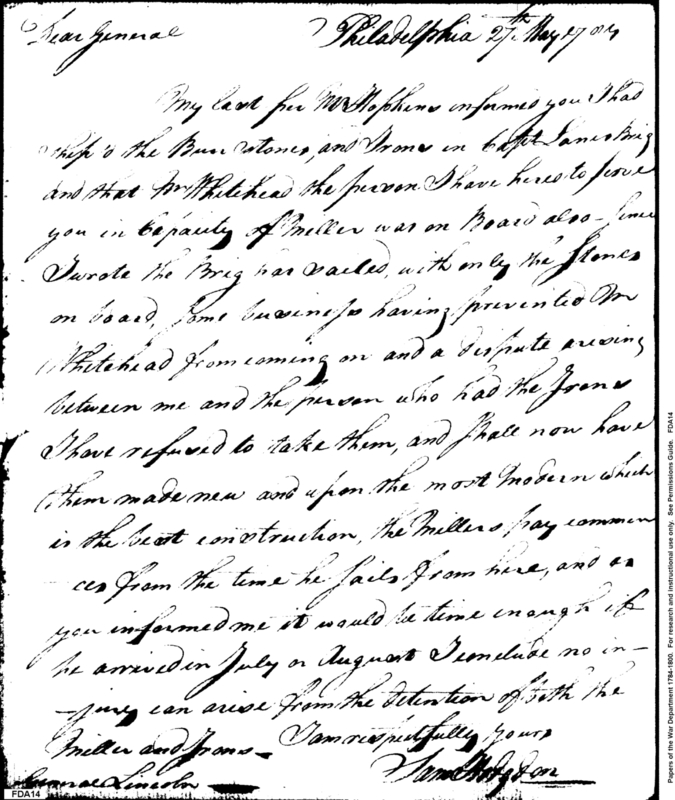 Dear General Philadelphia 27th May 1784
My last per Mr Hopkins informed you I had
ship'd the Burr stones, and Irons in Capt Lanes Brig
and that Mr Whitehead the person I have hired to serve
you in Capacity of Miller was on Board also - Since
I wrote the Brig has sailed, with only the Stones
on board, some business having prevented Mr
Whitehead from coming on and a dispute arising
between me and the person who had the Irons
I have refused to take them, and shall now have
them made new and upon the most Modern which
is the best construction, the Millers pay commen
ces from the time he sails from here, and as
you informed me it would be time enough if
he arrived in July or August I conclude no in-
-jury can arise from the detention of both the
Miller and Irons - I am respectfully yours
Sam Hodgdon
General Lincoln
FDA14
Papers of the War Department 1784-1800. For research and instructional use only. See Permissions Guide. FDA14